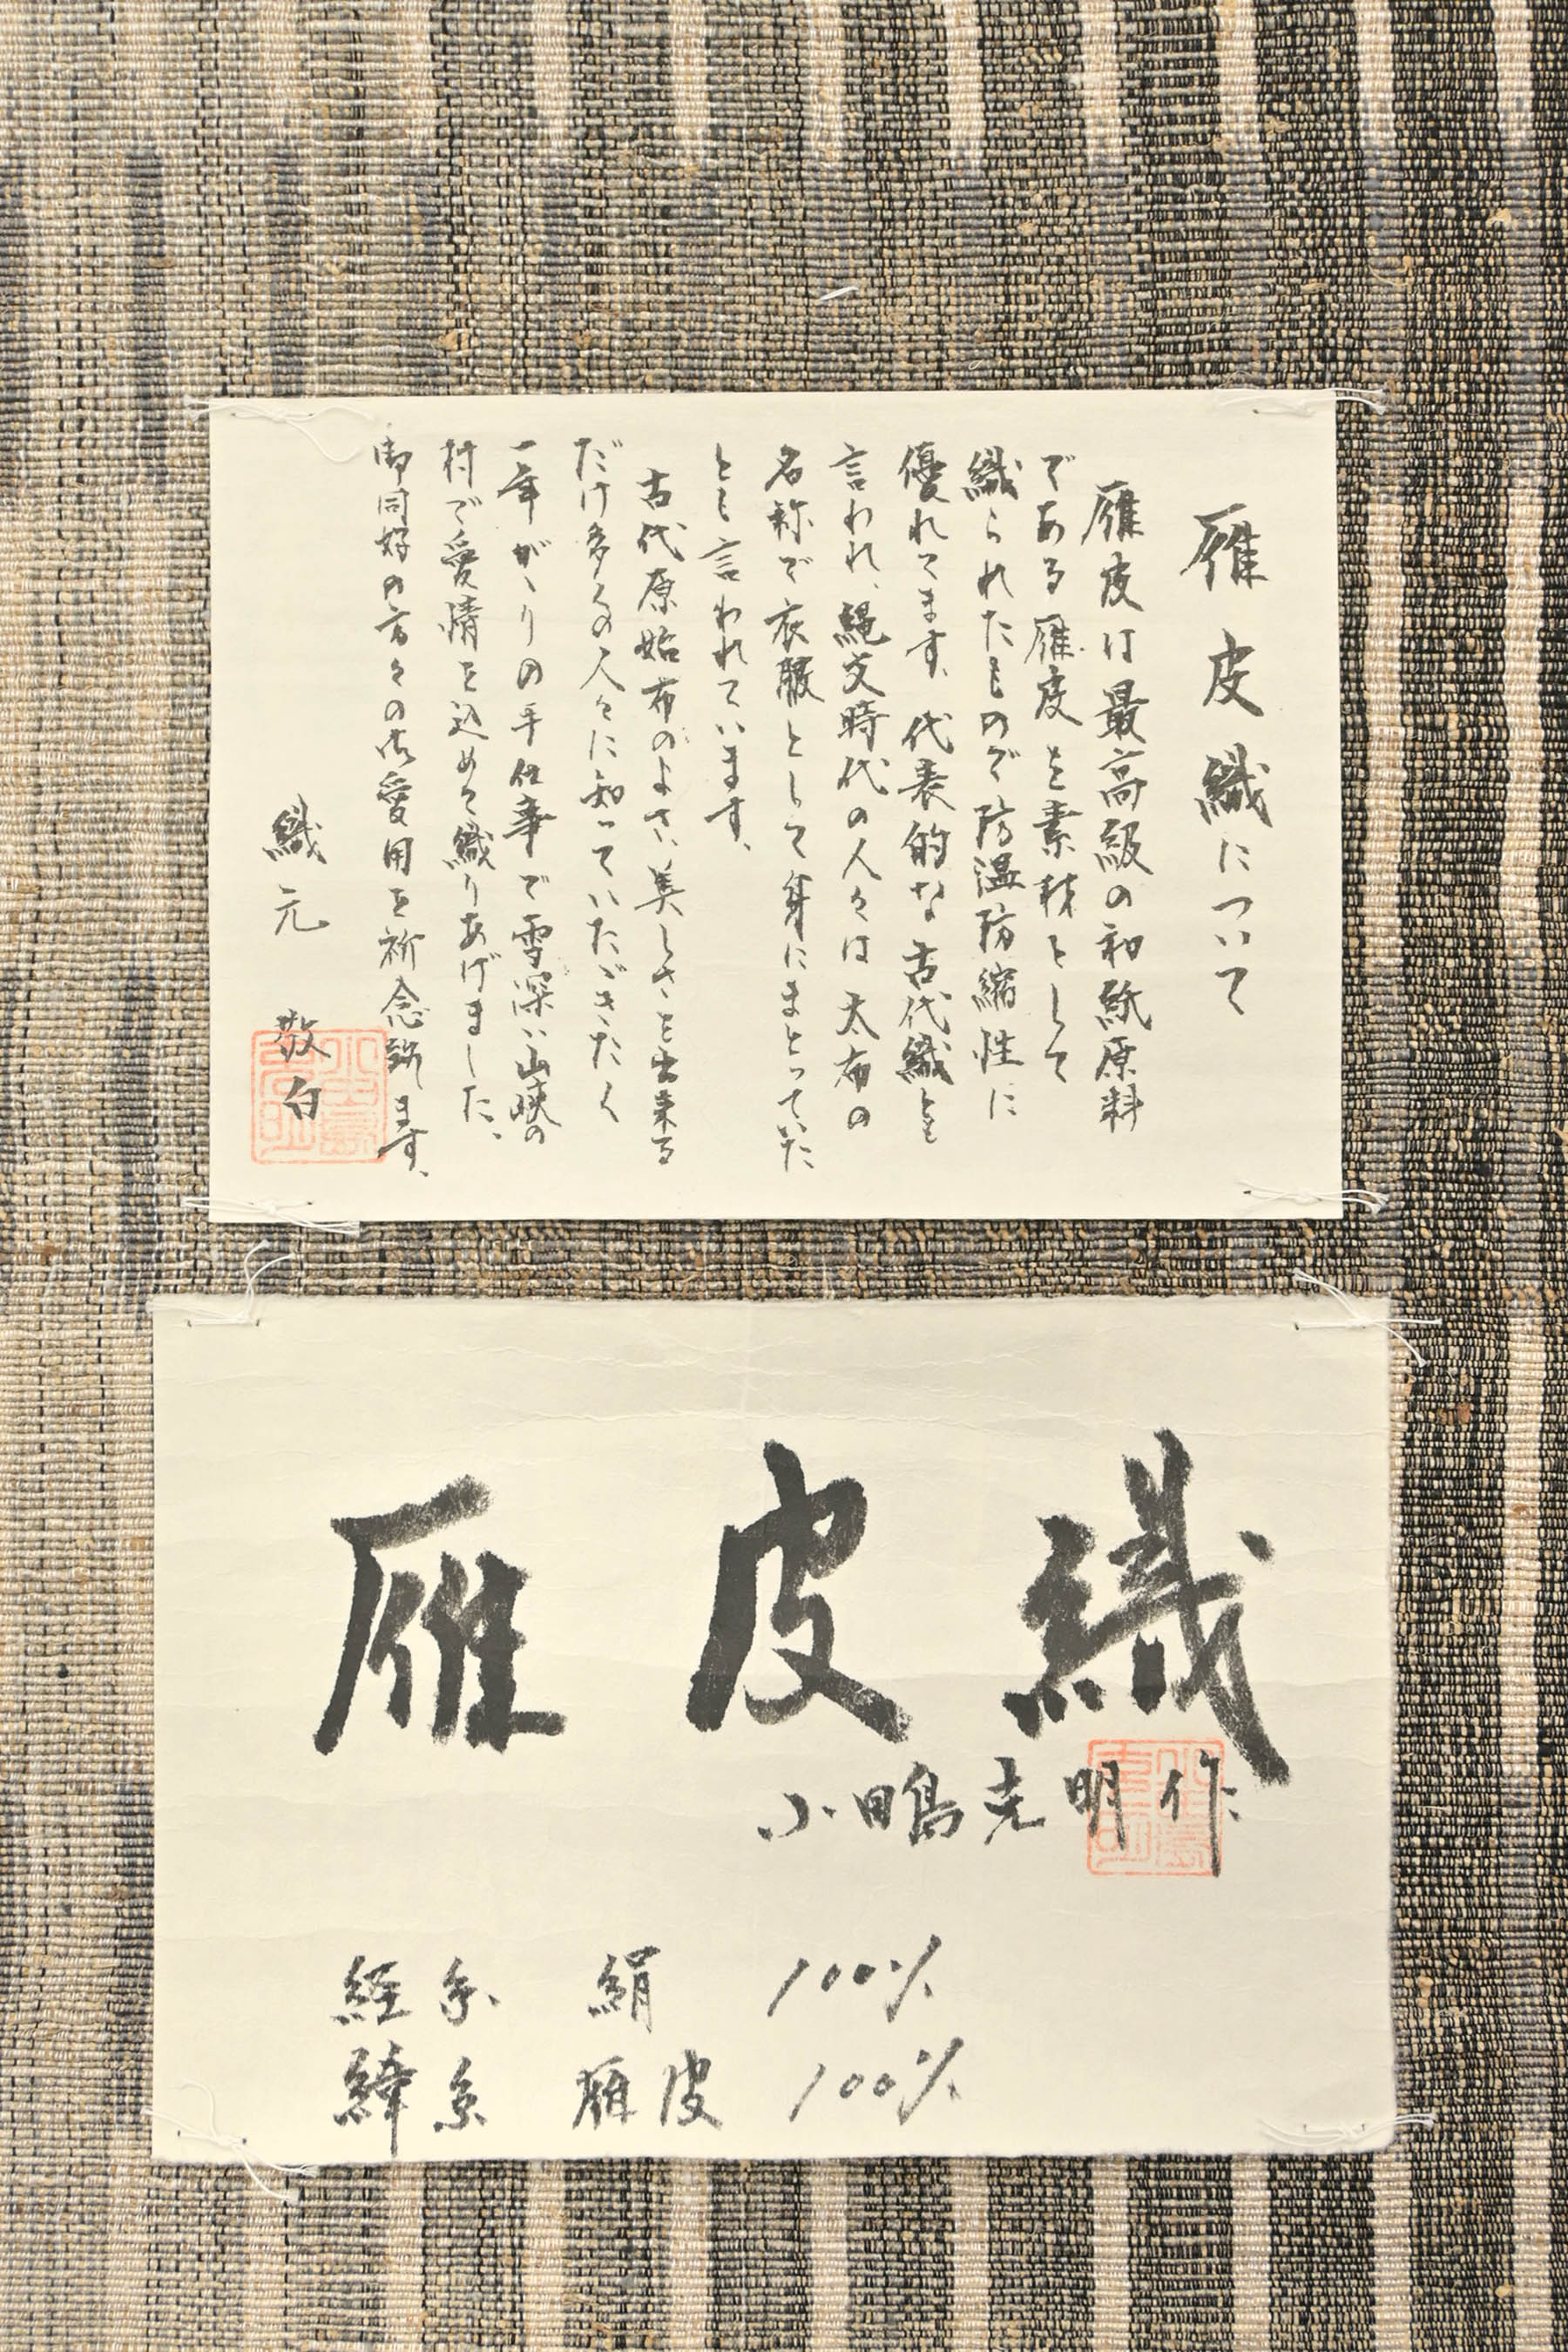 雁皮織について
雁皮は最高級の和紙原料
である雁皮を素材として
織られたもので防温防縮性に
優れてます。代表的な古代織とも
言われ、縄文時代の人々は太布の
名称で衣服として身にまとっていた
とも言われています。
古代原始布のよさ、美しさを出来る
だけ多くの人々に知っていただきたく
一年がゝりの手仕事で雪深い山峡の
村で愛情を込めて織りあげました。
御同好の方々の御愛用を祈念致します。
織元 敬白
雁皮織
小田嶋克明作
経糸 絹 100%
緯糸 雁皮 100%